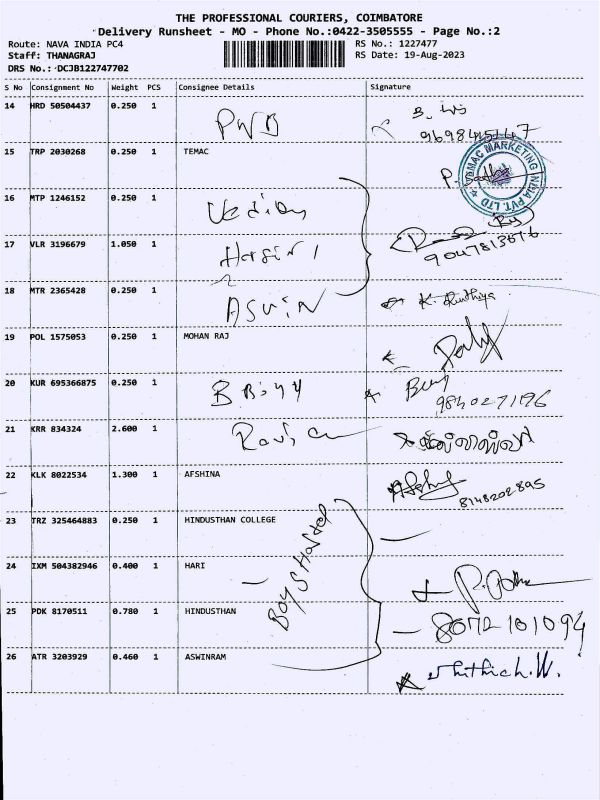 THE PROFESSIONAL COURIERS, COIMBATORE
Delivery Runsheet - MO - Phone No.:0422-3505555 - Page No.:2
Route: NAVA INDIA PC4
RS No.: 1227477
Staff: THANAGRAJ
RS Date: 19-Aug-2023
DRS No.: DCJB122747702
S No Consignment No Weight PCS Consignee Details Signature
14 HRD 50504437 0.250 1 PWB
15 TRP 2030268 0.250 1 TEMAC
TEMAC MARKETING INDIA PVT. LTD
16 MTP 1246152 0.250 1
17 VLR 3196679 1.050 1 Harini
9047813676
18 MTR 2365428 0.250 1 ASWIN K.
19 POL 1575053 0.250 1 MOHAN RAJ
20 KUR 695366875 0.250 1
9840271196
21 KRR 834324 2.600 1
22 KLK 8022534 1.300 1 AFSHINA
8148202895
23 TRZ 325464883 0.250 1 HINDUSTHAN COLLEGE
Boys Hostel
24 IXM 504382946 0.400 1 HARI
25 PDK 8170511 0.780 1 HINDUSTHAN 8072101094
26 ATR 3203929 0.460 1 ASWINRAM